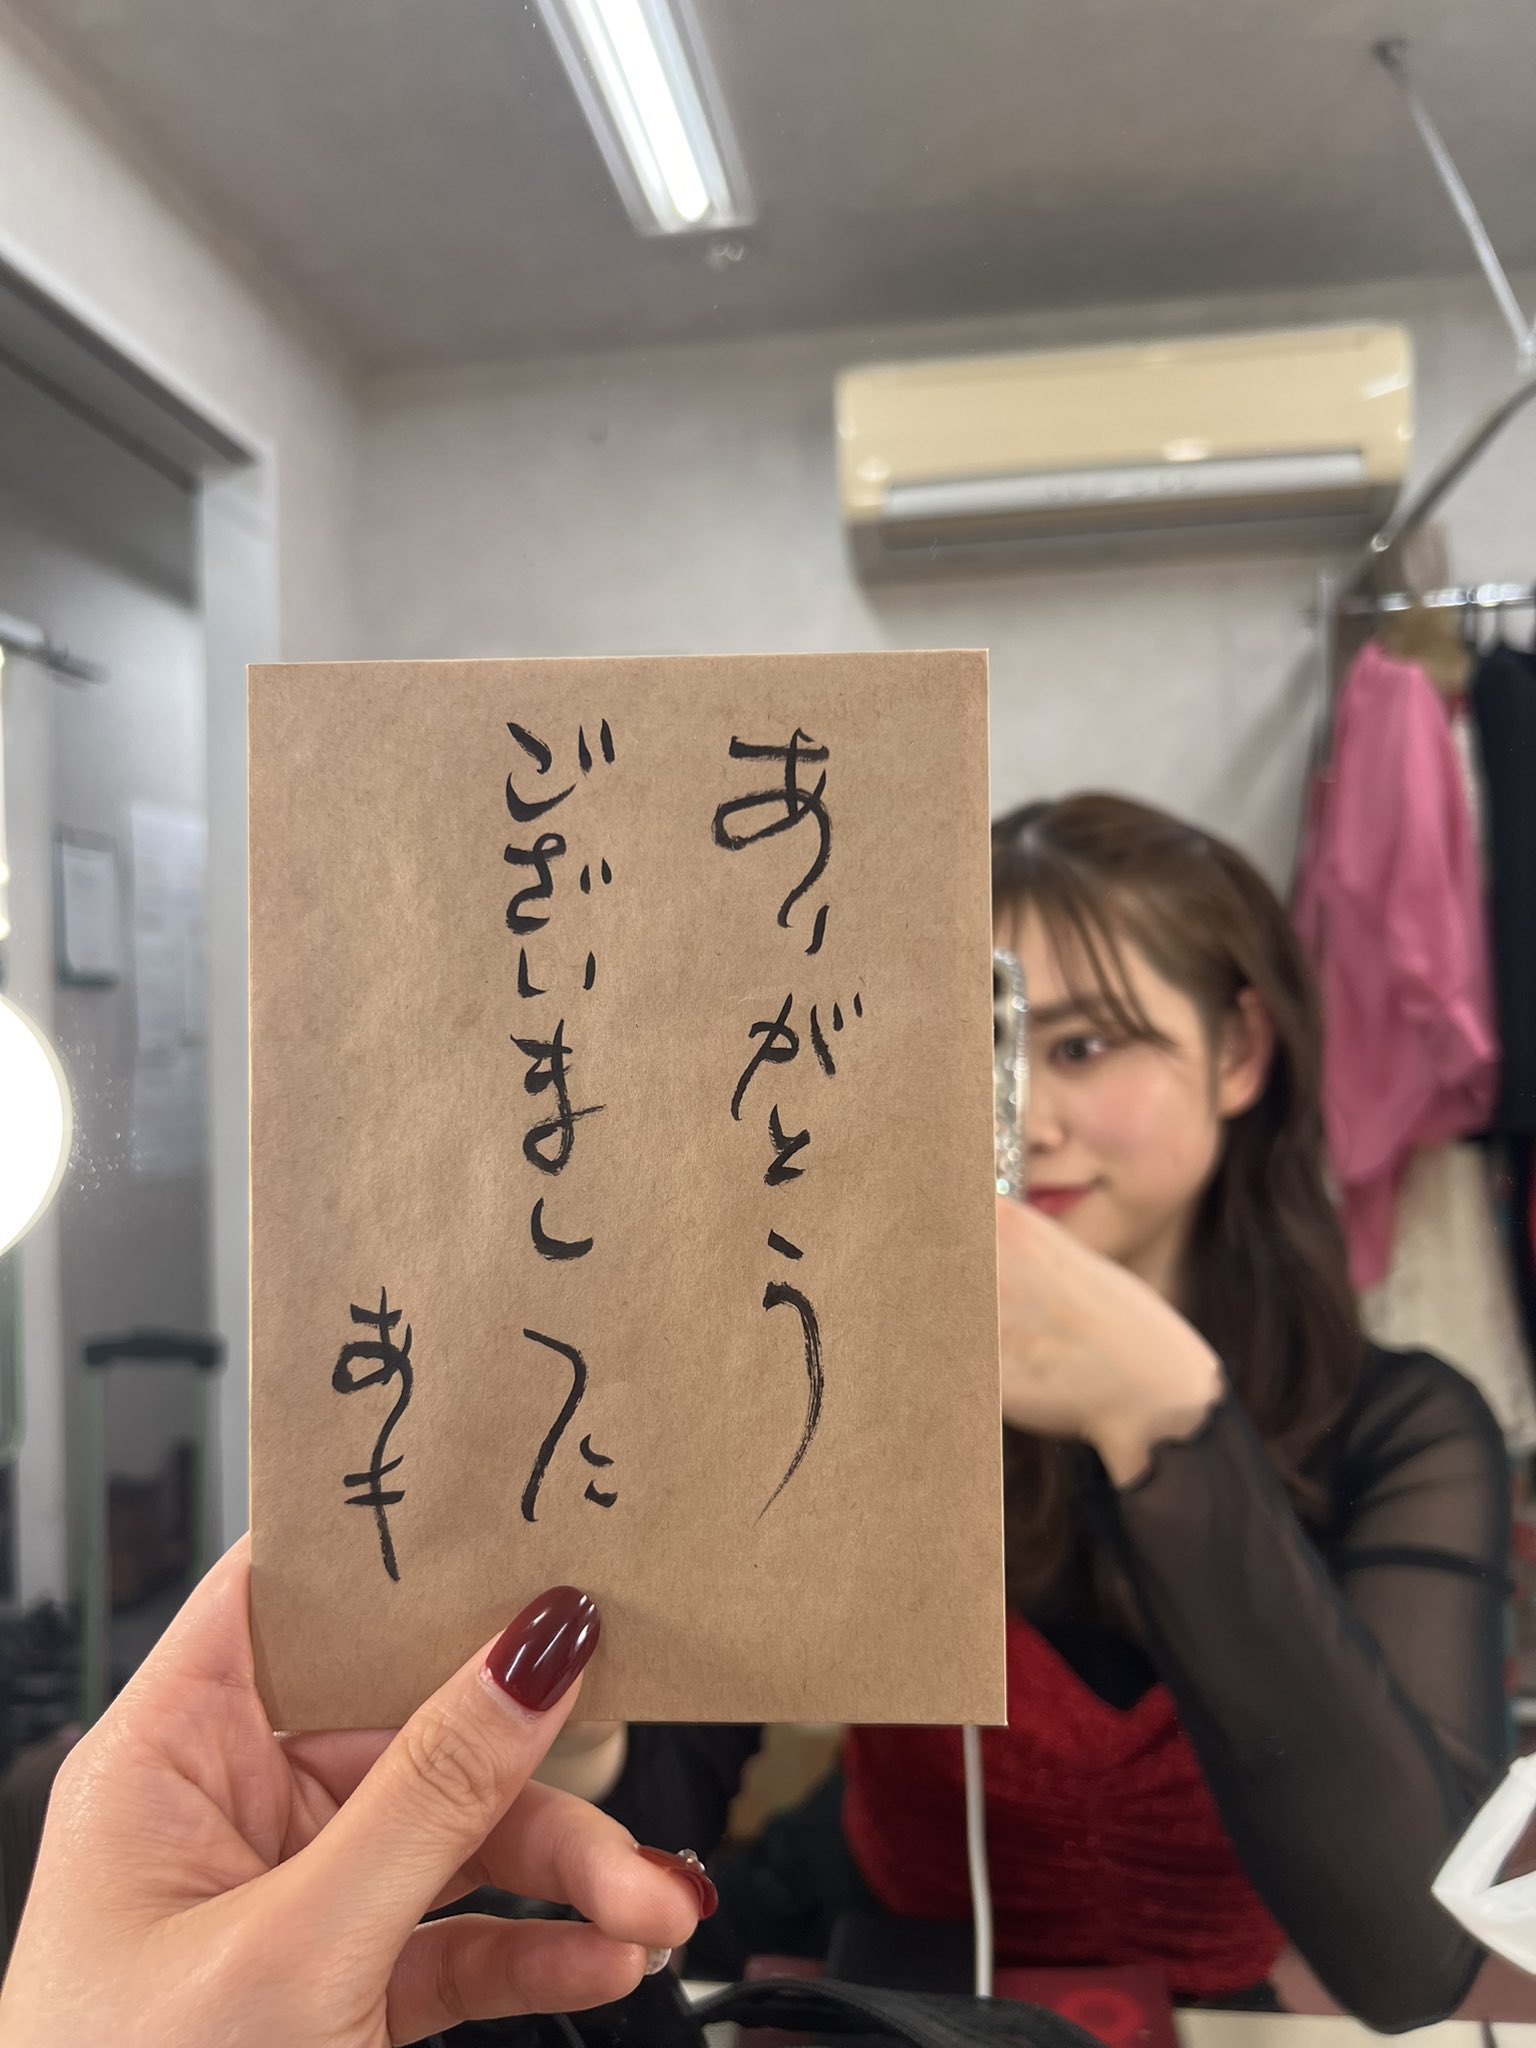 ありがとう
ございました
あき